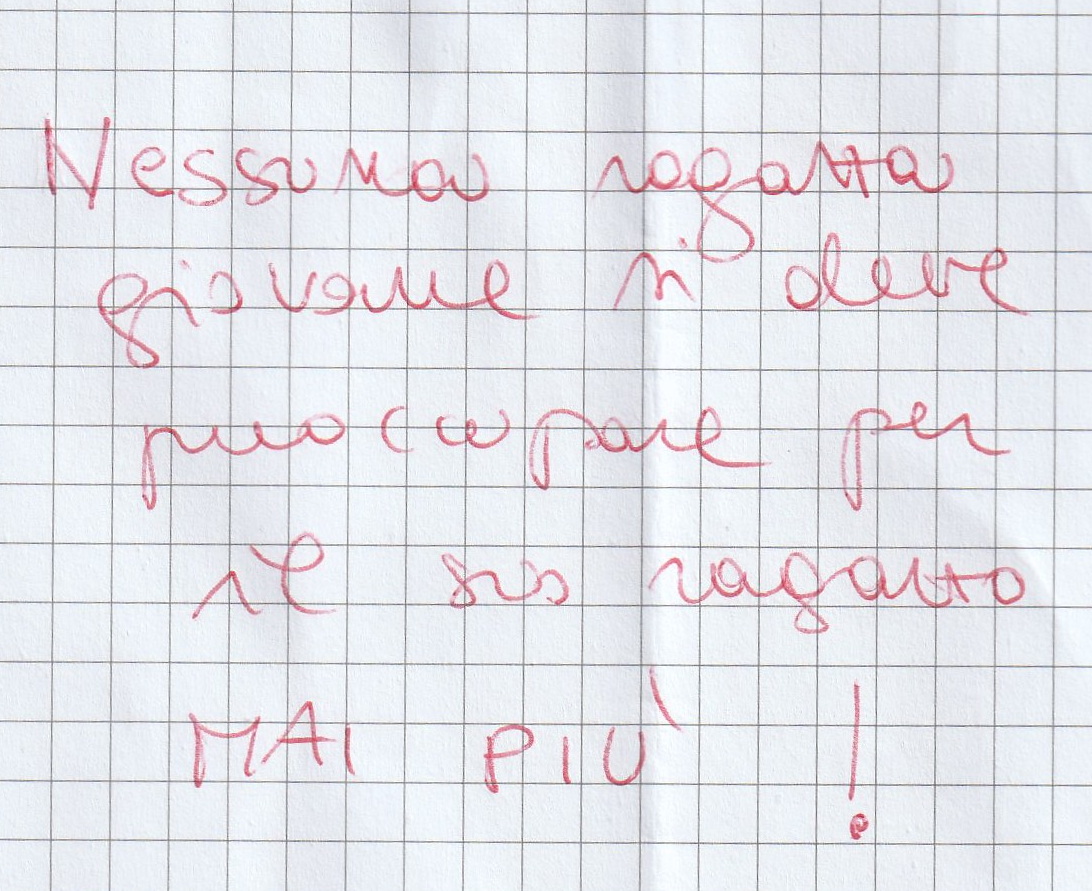 Nessuna ragazza
giovane si deve
preoccupare per
il suo ragazzo
MAI PIÙ !